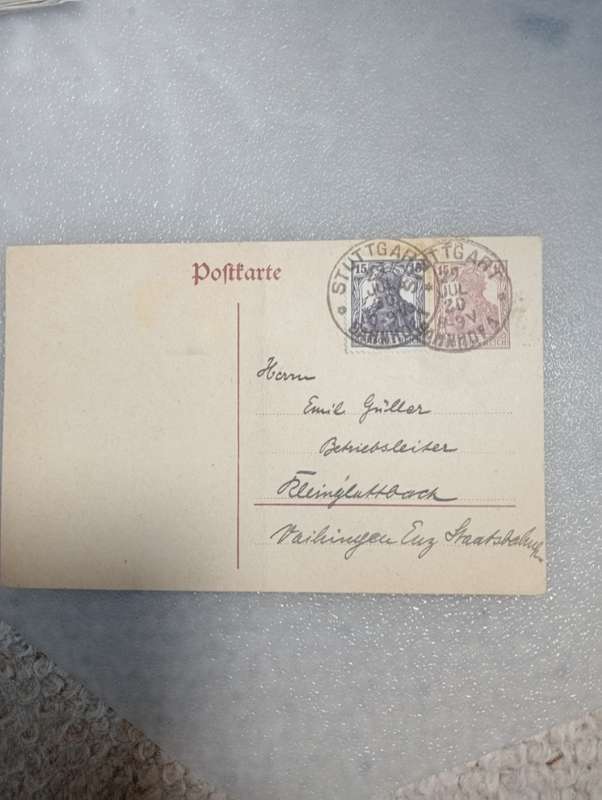 Postkarte
STUTTGART
JUL
20
8-9V
BAHNHOF
15
15
REICH
Herrn
Emil Güller
Betriebsleiter
Kleinglattbach
Vaihingen Enz Staatsbahnh